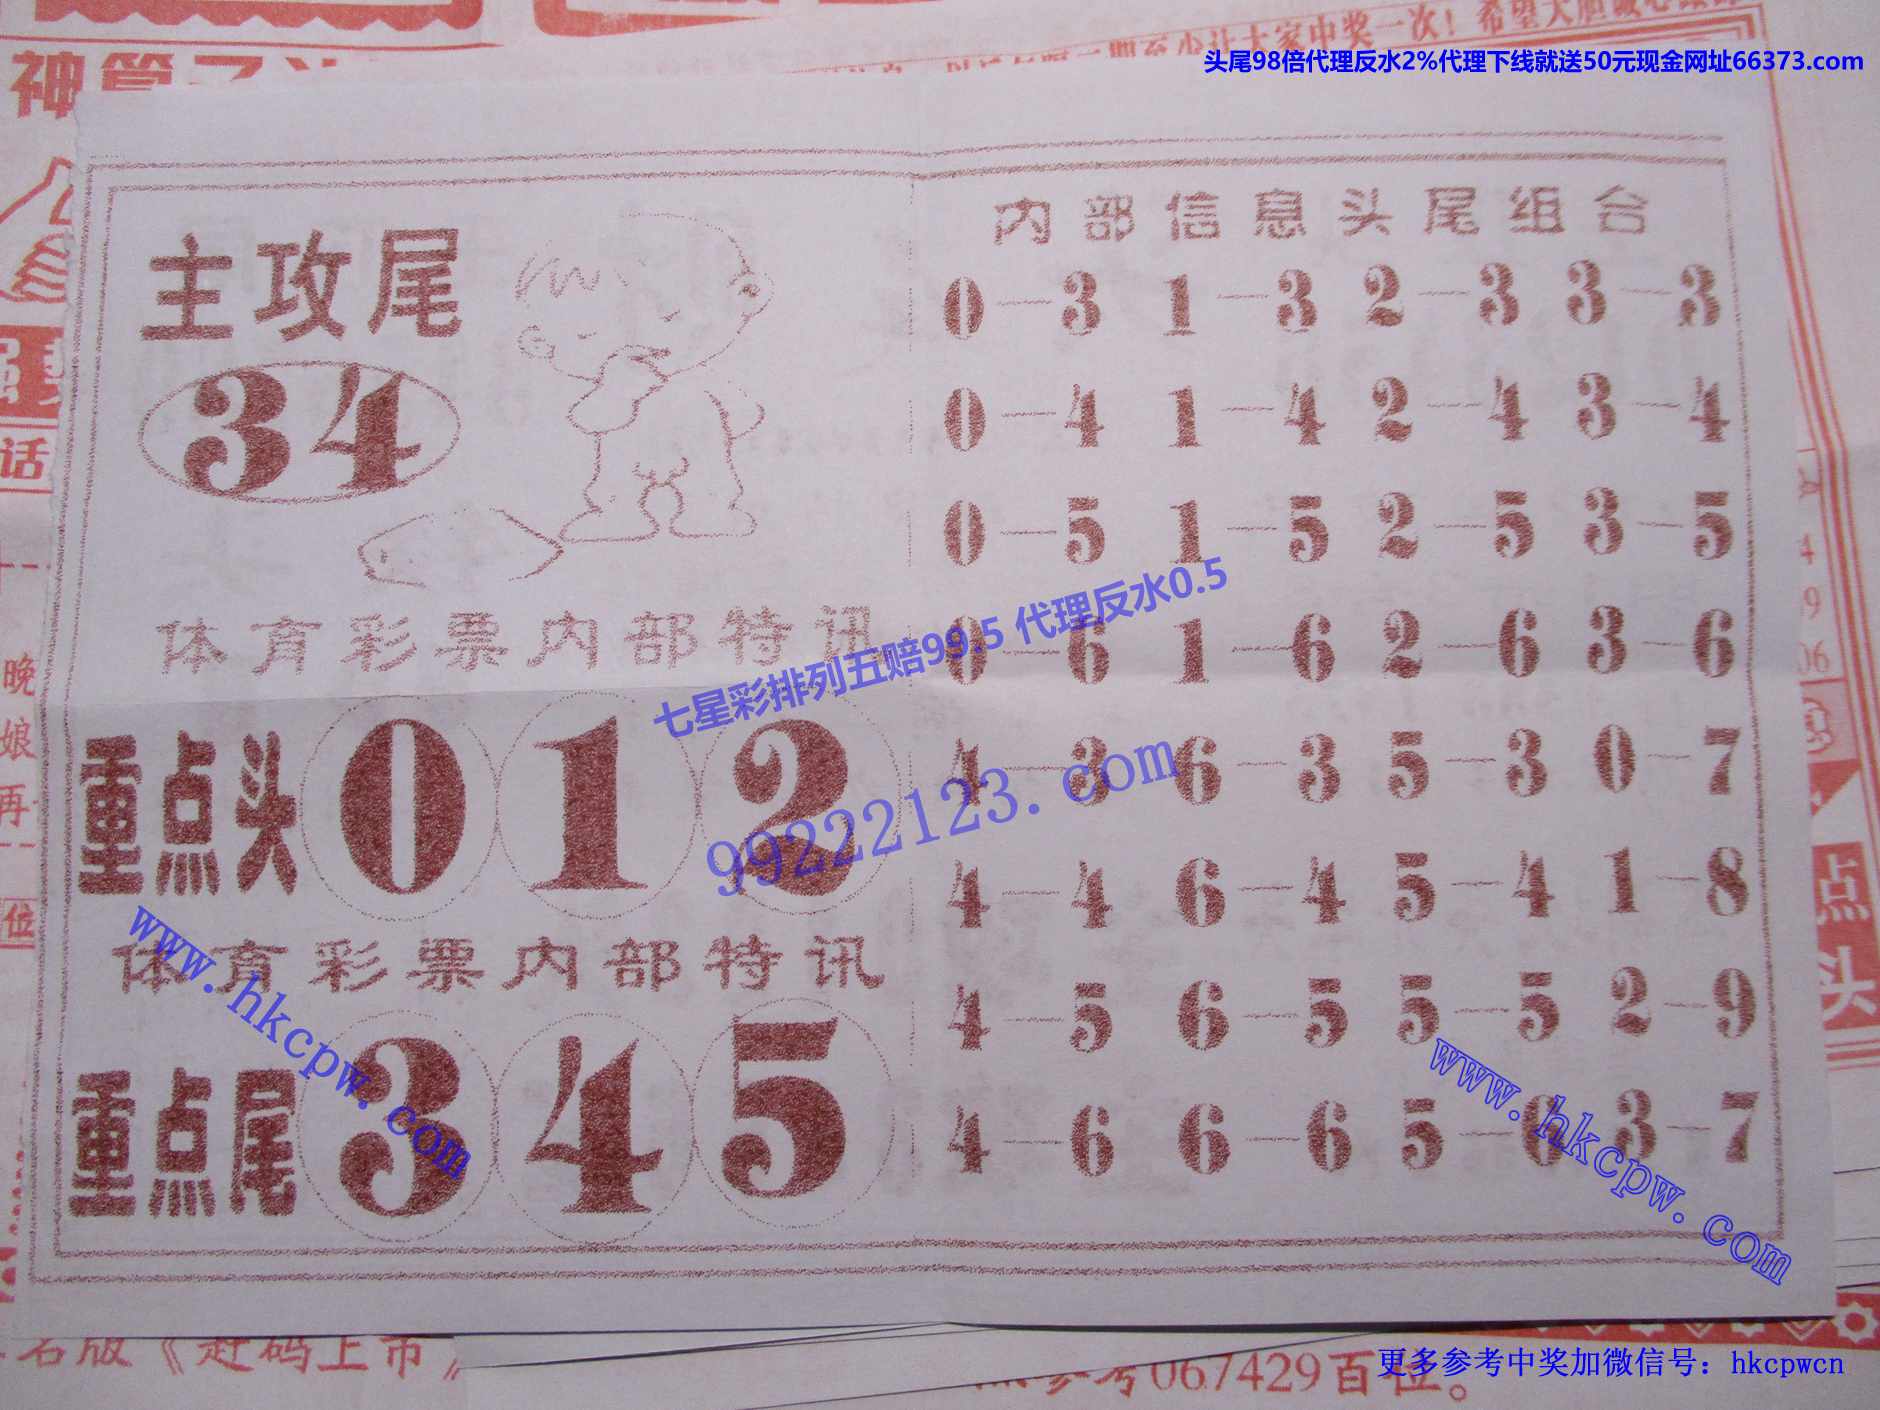 头尾98倍代理反水2%代理下线就送50元现金网址66373.com
主攻尾
34
体育彩票内部特讯
重点头 0 1 2
体育彩票内部特讯
重点尾 3 4 5
内部信息头尾组合
0—3 1—3 2—3 3—3
0—4 1—4 2—4 3—4
0—5 1—5 2—5 3—5
0—6 1—6 2—6 3—6
4—3 6—3 5—3 0—7
4—4 6—4 5—4 1—8
4—5 6—5 5—5 2—9
4—6 6—6 5—6 3—7
七星彩排列五赔99.5 代理反水0.5
99222123.com
www.hkcpw.com
www.hkcpw.com
话
晚
娘
再
位
点
头
名版《赶码上市》
参考067429百位。
更多参考中奖加微信号：hkcpwcn